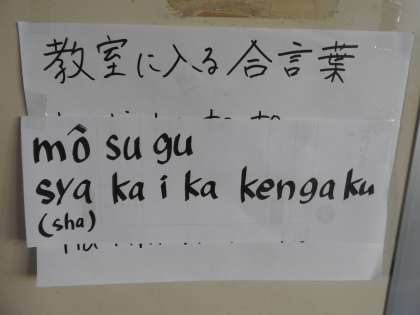 教室に入る合言葉
mô su gu
sya ka i ka kengaku
(sha)